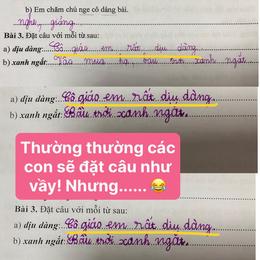 b) Em chăm chú nge cô dảng bài.
nghe, giảng
Bài 3. Đặt câu với mỗi từ sau:
a) dịu dàng: Cô giáo em rất dịu dàng.
b) xanh ngắt: Vào mùa hạ, bầu trời xanh ngắt.
a) dịu dàng: Cô giáo em rất dịu dàng.
b) xanh ngắt: Bầu trời xanh ngắt.
Thường thường các
con sẽ đặt câu như
vầy! Nhưng...... 😂
Bài 3. Đặt câu với mỗi từ sau:
a) dịu dàng: Cô giáo em rất dịu dàng.
b) xanh ngắt: Bầu trời xanh ngắt.